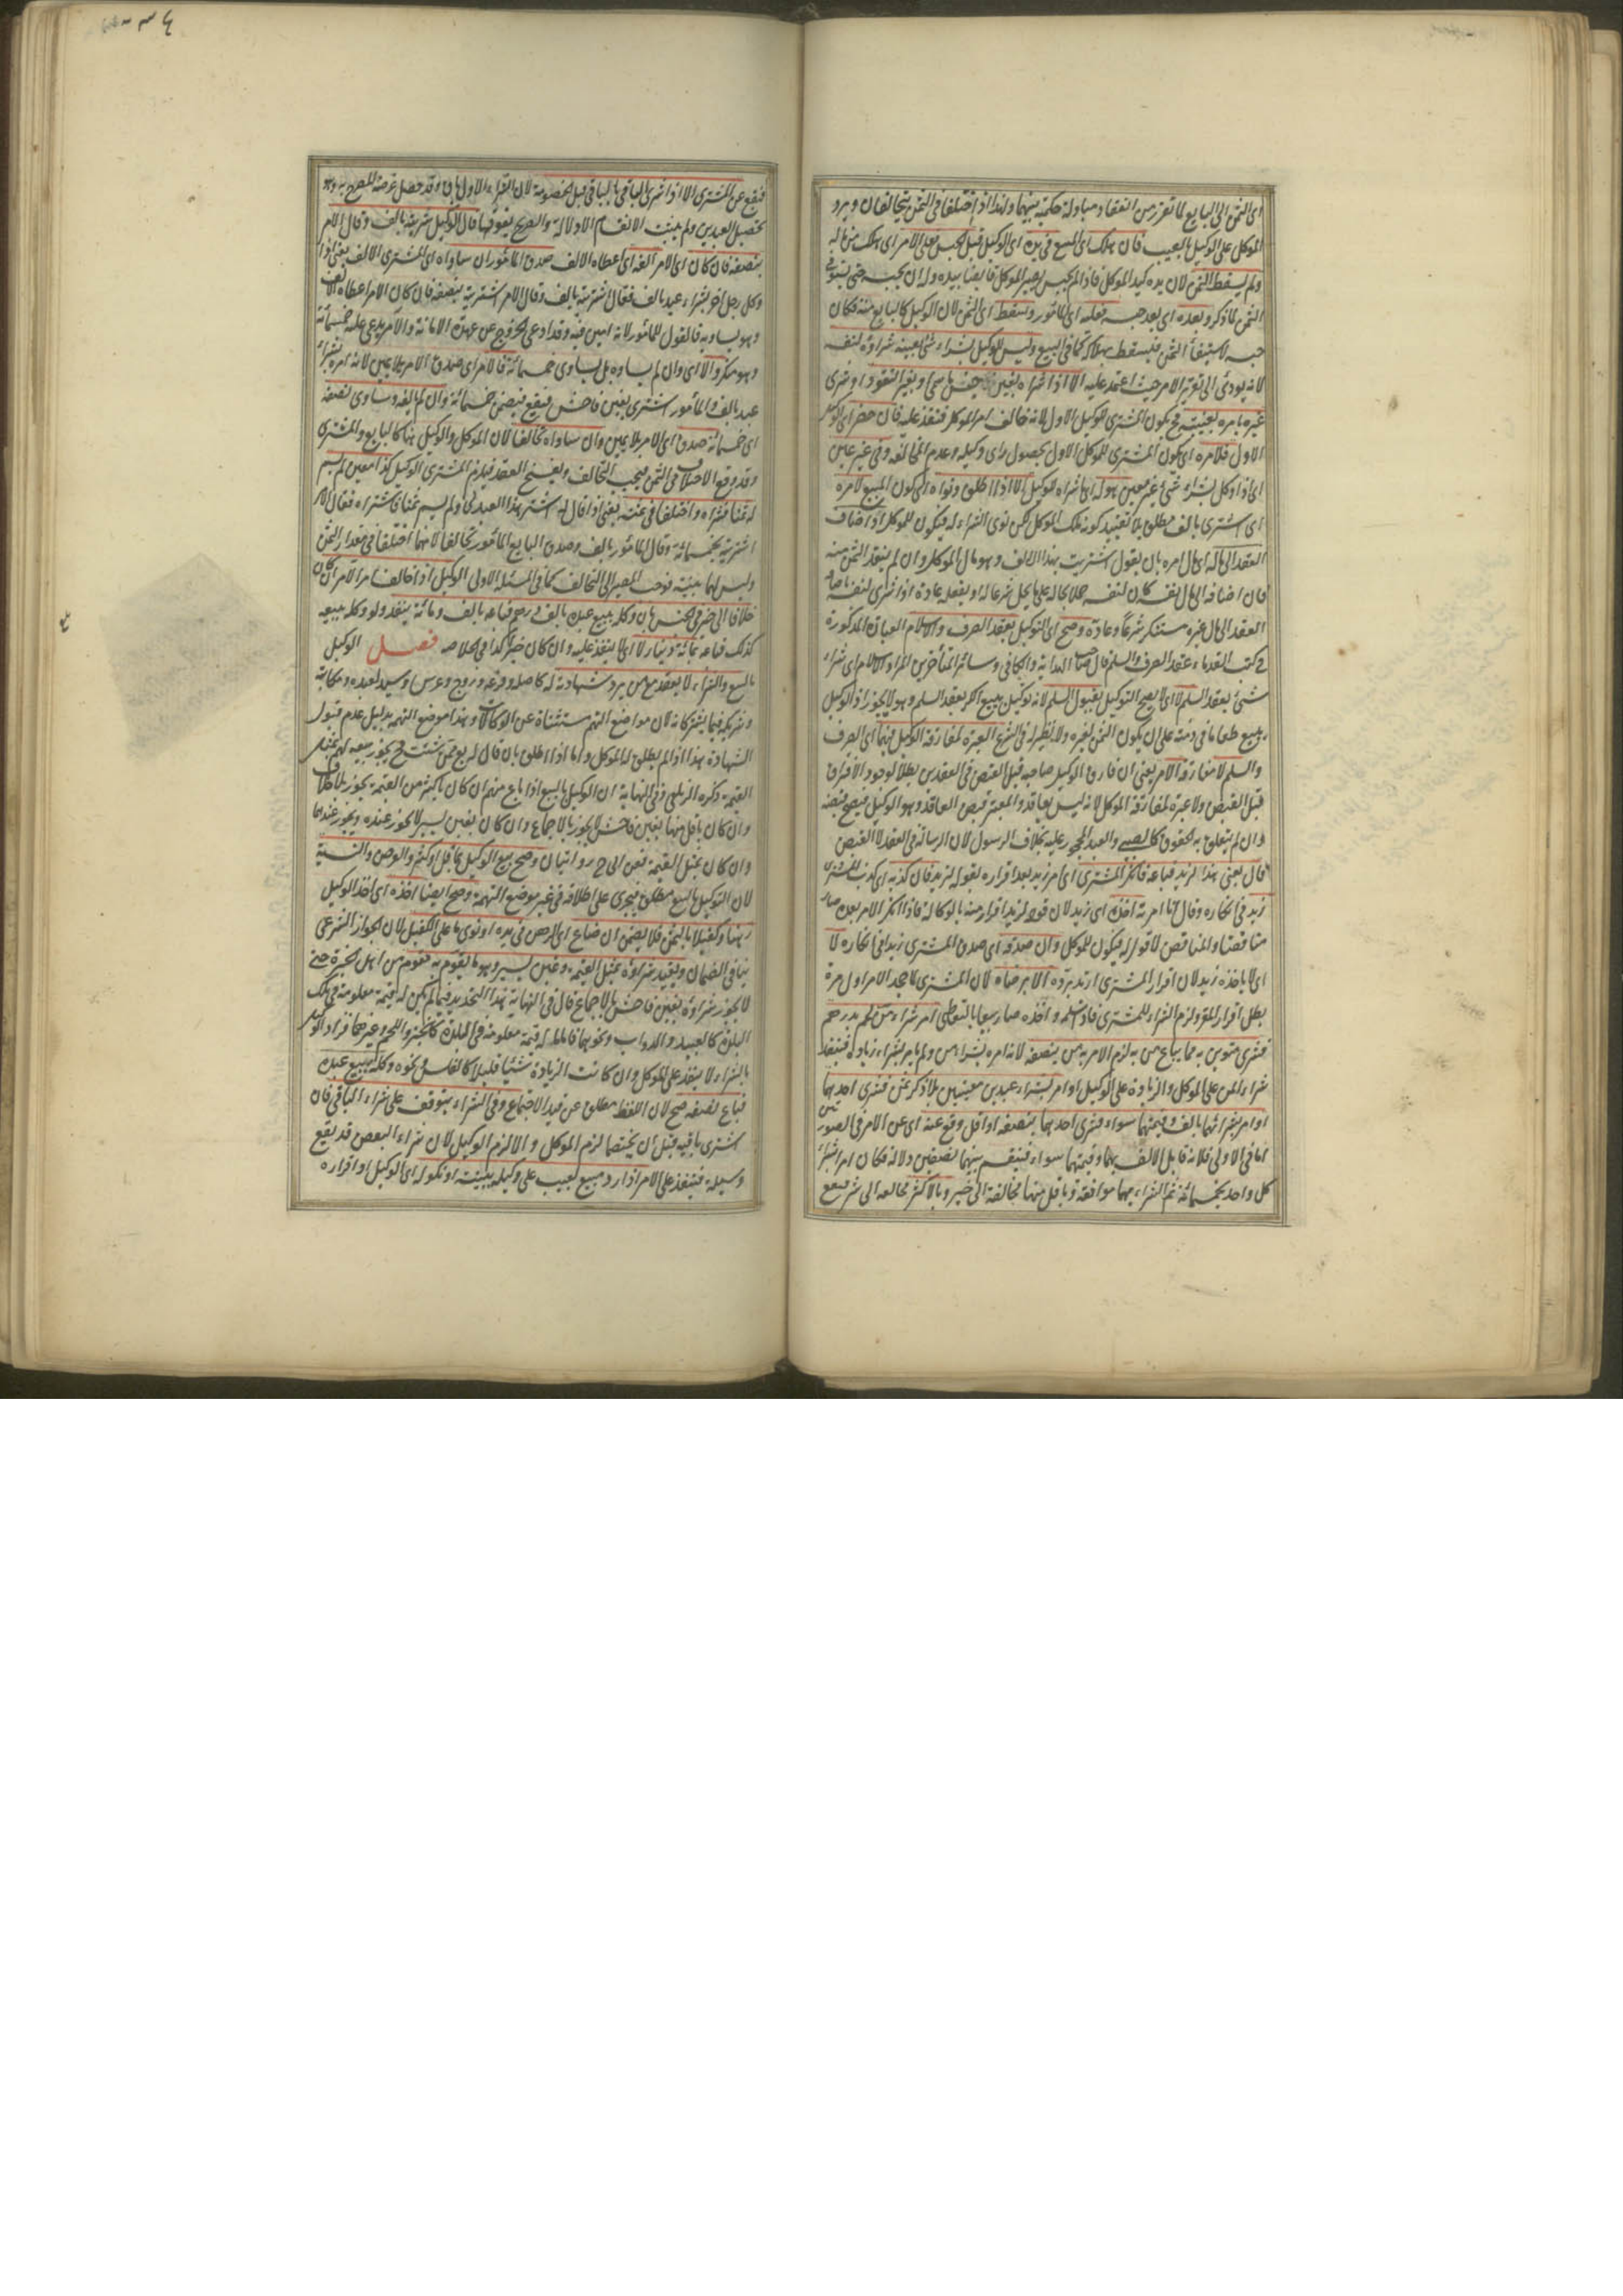 اى الثمن الى البايع لما تقرر من انعقاد مبادلة حكمية بينهما ولهذا اذا اختلفا فى الثمن يتحالفان ويرد
الموكل على الوكيل بالعيب فان هلك اى المبيع فى يده اى الوكيل قبل الحبس فعلى الامر اى هلك من ماله
ولم يسقط الثمن لان يده كيد الموكل فاذا لم يحبس يصير الموكل قابضا بيده وله ان يحبسه حتى يستوفى
الثمن لما ذكر وبعده اى بعد حبسه فعليه اى المأمور ويسقط اى الثمن لان الوكيل كالبايع منه فكان
حبسه لاستيفاء الثمن فيسقط بهلاكه كما فى البيع وليس للوكيل بشراء شئ بعينه شراؤه لنفسه
لانه يودى الى تغرير الامر حيث اعتمد عليه الا اذا شراه بغير جنس ما سمى او بغير النقود او شرى
غيره بامره بغيبته فح يكون المشترى للوكيل الاول لانه خالف امر الموكل فنفذ عليه فان حضر اى الوكيل
الاول فلامره اى يكون المشترى للموكل الاول بحصول راى وكيله وعدم المخالفة وفى غير عين
اى اذا وكل بشراء شئ غير معين هو له اى ما شراه للوكيل الا اذا اطلق ونواه اى كون المبيع لامره
اى اشترى بالف مطلق بلا تقييد كونه ملك الموكل لكن نوى الشراء له فيكون للموكل او اضاف
العقد الى ماله اى مال امره بان يقول اشتريت بهذا الالف وهو مال الموكل وان لم ينقد الثمن منه
فان اضافه الى مال نفسه كان لنفسه حملا لحاله على ما يحل شرعا له او يفعله عادة اذ الشرى لنفسه باضافة
العقد الى مال غيره مستنكر شرعا وعادة وصح اى التوكيل بعقد الصرف والاسلام العبارة المذكورة
فى كتب القدماء عقد الصرف والسلم قال صاحب الهداية والكافى وسائر المتأخرين المراد الاسلام اى شراء
شئ بعقد السلم لا اى لا يصح التوكيل بقبول السلم لانه توكيل ببيع الكر بعقد السلم وهو لا يجوز اذ الوكيل
يبيع طعاما فى ذمته على ان يكون الثمن لغيره ولا نظير له فى الشرع العبرة لمفارقة الوكيل فيهما اى الصرف
والسلم لا مفارقة الامر يعنى ان فارق الوكيل صاحبه قبل القبض فى العقدين بطلا لوجود الافتراق
قبل القبض ولا عبرة لمفارقة الموكل لانه ليس بعاقد والمعتبر قبض العاقد وهو الوكيل فيصح قبضه
وان لم يتعلق به الحقوق كالصبى والعبد المحجور عليه بخلاف الرسول لان الرسالة فى العقد لا القبض
قال بعنى هذا لزيد فباعه فانكر المشترى اى امر زيد بعد اقراره بقوله لزيد فان كذبه اى كذب المشترى
زيد فى انكاره وقال انا امرته اخذه اى زيد لان قوله لزيد اقرار منه بالوكالة فاذا انكر الامر بعده صار
مناقضا والمناقض لا قول له فيكون للموكل وان صدقه اى صدق المشترى زيدا فى انكاره لا
اى لا ياخذه زيد لان اقرار المشترى ارتد برده الا برضاه لان المشترى لما جحد الامر اول مرة
بطل اقرار المقر ولزم الشراء للمشترى فاذا سلمه واخذه صار بيعا بالتعاطى امر بشراء من لحم بدرهم
فشرى منوين به مما يباع من به لزم الامر به من بنصفه لانه امره بشراء من ولم يامر بشراء زيادة فينفذ
شراء المن على الموكل والزيادة على الوكيل او امر بشراء عبدين معينين بلا ذكر ثمن فشرى احدهما
او امر بشرائهما بالف وقيمتهما سواء فشرى احدهما بنصفه او اقل وقع عنه اى عن الامر فى الصورتين
اما فى الاولى فلانه قابل الالف بهما وقيمتهما سواء فينقسم بينهما نصفين دلالة فكان امرا بشراء
كل واحد بخمسمائة ثم الشراء بهما موافقة وباقل منها مخالفة الى خير وبالاكثر مخالفة الى شر فيقع
فيقع عن المشترى الا اذا شرى الباقى بالباقى قبل الخصومة لان الشراء الاول باق وقد حصل غرضه المصرح به وهو
تحصيل العبدين ولم يثبت الانقسام الا دلالة والصريح يفوقها قال الوكيل شريته بالف وقال الامر
بنصفه فان كان اى الامر الفه اى اعطاه الالف صدق المأمور ان ساواه اى المشترى الالف يعنى اذا
وكل رجل اخر بشراء عبد بالف فقال اشتريته بالف وقال الامر اشتريته بنصفه فان كان الامر اعطاه الالف
وهو يساويه فالقول للمأمور لانه امين فيه وقد ادعى الخروج عن عهدة الامانة والامر يدعى عليه خمسمائة
وهو منكر والا اى وان لم يساوه بل يساوى خمسمائة فالامر اى صدق الامر بلا يمين لانه امره بشراء
عبد بالف والمأمور اشترى بغبن فاحش فيقع فيضمن خمسمائة وان لم يالفه وساوى نصفه
اى خمسمائة صدق اى الامر بلا يمين وان ساواه تحالفا لان الموكل والوكيل هنا كالبايع والمشترى
وقد وقع الاختلاف فى الثمن فيجب التحالف ويفسخ العقد فيلزم المشترى الوكيل كذا معين لم يسم
له ثمنا فشراه واختلفا فى ثمنه يعنى اذا قال له اشتر هذا العبد لى ولم يسم ثمنا فاشتراه فقال الامر
اشتريته بخمسمائة وقال المأمور بالف وصدق البايع المأمور تحالفا لانهما اختلفا فى مقدار الثمن
وليس لهما بينة فوجب المصير الى التحالف كما فى المسئلة الاولى الوكيل اذا خالف امر الامر ان كان
خلافا الى خير فى الجنس بان وكله ببيع عبده بالف درهم فباعه بالف ومائة ينفذ ولو وكله ببيعه
كذلك فباعه بمائة دينار لا اى لا ينفذ عليه وان كان خيرا كذا فى الخلاصه فصل الوكيل
بالبيع والشراء لا يعقد مع من يرد شهادته له كاصله وفرعه وزوج وعرس وسيد لعبده ومكاتبه
وشريكه فيما يشتركانه لان مواضع التهم مستثناة عن الوكالات وهذا موضع التهمة بدليل عدم قبول
الشهادة هذا اذا لم يطلق له الموكل واما اذا اطلق بان قال له بع ممن شئت فح يجوز بيعه لهم بمثل
القيمة ذكره الزيلعى وفى النهاية ان الوكيل بالبيع اذا باع منهم ان كان باكثر من القيمة يجوز بلا خلاف
وان كان باقل منها بغبن فاحش لا يجوز بالاجماع وان كان بغبن يسير لا يجوز عنده ويجوز عندهما
وان كان بمثل القيمة فعن ابى ح روايتان وصح بيع الوكيل بما قل او كثر والعرض والنسية
لان التوكيل بالبيع مطلق فيجرى على اطلاقه فى غير موضع التهمة وصح ايضا اخذه اى اخذ الوكيل
رهنا وكفيلا بالثمن فلا يضمن ان ضاع اى الرهن فى يده او توى ما على الكفيل لان الجواز الشرعى
ينافى الضمان ويقيد شراؤه بمثل القيمة وغبن يسير وهو ما يقوم به مقوم من اهل الخبرة حتى
لا يجوز شراؤه بغبن فاحش بالاجماع قال فى النهاية هذا التحديد فيما لم يكن له قيمة معلومة فى تلك
البلدة كالعبيد والدواب ونحوهما فاما ما له قيمة معلومة فى البلدة كالخبز واللحم وغيرهما فزاد الوكيل
بالشراء لا ينفذ على الموكل وان كانت الزيادة شيئا قليلا كالفلس ونحوه وكله ببيع عبده
فباع نصفه صح لان اللفظ مطلق عن قيد الاجتماع وفى الشراء يتوقف على شراء الباقى فان
اشترى باقيه قبل ان يختصما لزم الموكل والا لزم الوكيل لان شراء البعض قد يقع
وسيلة فينفذ على الامر اذا رد مبيع بعيب على وكيله ببينته او نكوله اى الوكيل او اقراره